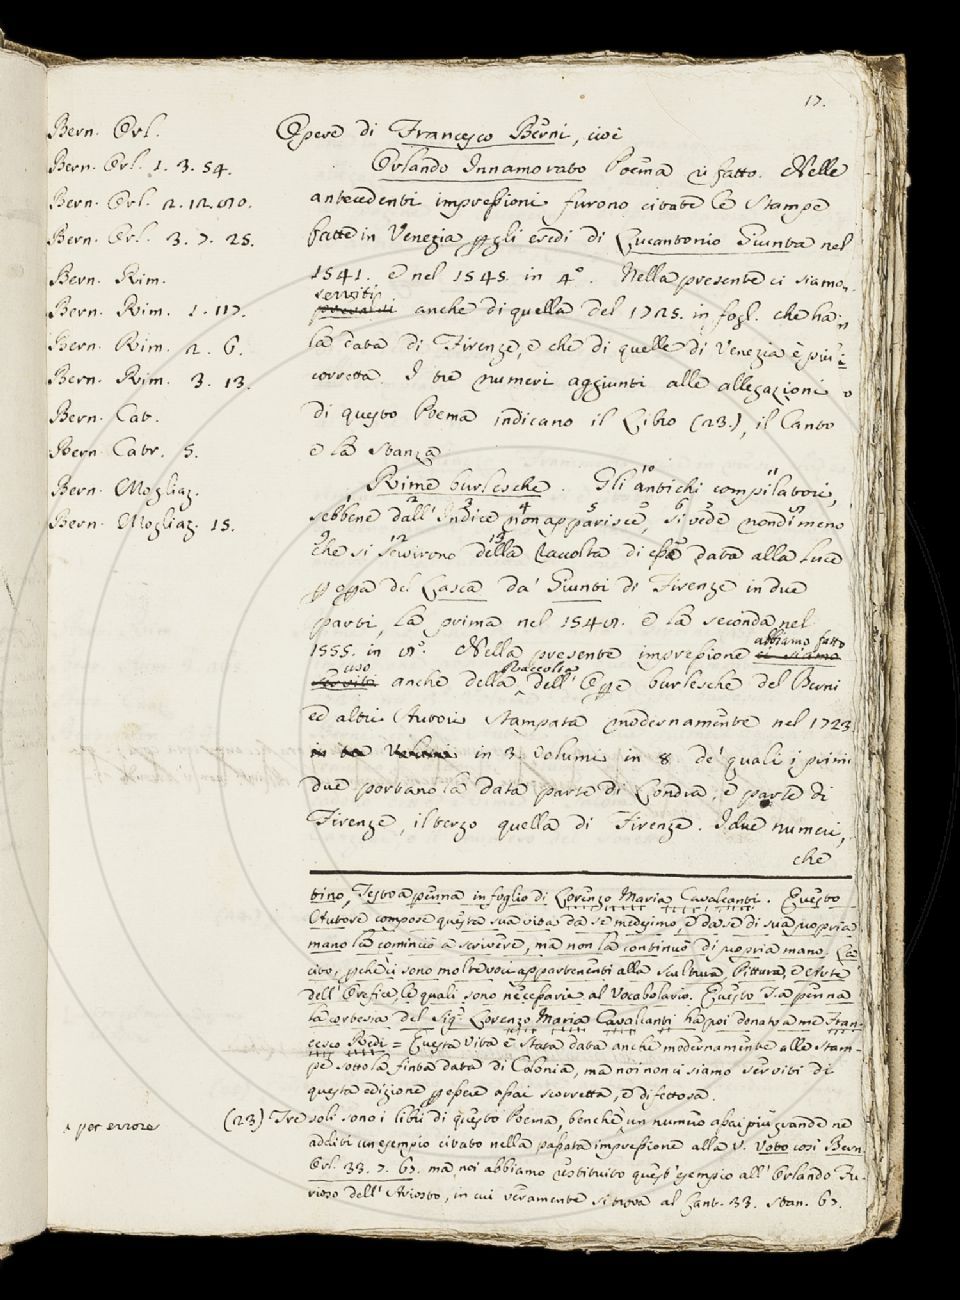 17.
Bern. Orl.
Bern. Orl. 1. 3. 54.
Bern. Orl. 2. 12.
Bern. Orl. 3. 7. 25.
Bern. Rim.
Bern. Rim. 1. 117.
Bern. Rim. 2. 6.
Bern. Rim. 3. 13.
Bern. Cat.
Bern. Catr. 5.
Bern. Mogliaz.
Bern. Mogliaz. 15.
Opere di Francesco Berni, cioè
Orlando Innamorato Poema rifatto. Nelle
antecedenti impressioni furono citate le Stampe
fatte in Venezia p gli eredi di Lucantonio Giunta nel
1541. e nel 1545. in 4°. Nella presente ci siamo
serviti
anche di quella del 1725. in fogl. che ha
la data di Firenze, e che di quelle di Venezia è più
corretta. I tre numeri aggiunti alle allegazioni
di questo Poema indicano il Libro (23.), il Canto
e la Stanza
Rime burlesche. Gli antichi compilatori,
sebbene dall' Indice non apparisce, si vede nondimeno
che si servirono della Raccolta di esse data alla luce
p opa del Lasca da' Giunti di Firenze in due
parti, la prima nel 1548. e la seconda nel
abbiamo fatto
1555. in 8°. Nella presente impressione ci siamo
uso Raccolta
serviti anche della dell' Opere burlesche del Berni
ed altri Autori stampata modernamente nel 1723.
in tre Volumi in 3. Volumi in 8. de' quali i primi
due portano la data parte di Londra, e parte di
Firenze, il terzo quella di Firenze. I due numeri,
che
tino, Testo a penna in foglio di Lorenzo Maria Cavalcanti. Questo
Autore compose questa sua vita da se medesimo, e da se di sua propria
mano la cominciò a scrivere, ma non la continuò di propria mano. La
cito, pchè ci sono molte voci appartenenti alla Scultura, Pittura, e Arte
dell' Orefice, le quali sono necessarie al Vocabolario. Questo T. a penna
la cortesia del Sig.r Lorenzo Maria Cavalcanti ha poi donato a me Fran-
cesco Redi = Questa Vita è stata data anche modernamente alle Stam-
pe sotto la finta data di Colonia, ma noi non ci siamo serviti di
questa edizione p essere assai scorretta, e difettosa.
^ per errore
(23) Tre soli sono i libri di questo Poema, benchè un numero assai più grande ne
additi un esempio citato nella passata impressione alla V. Voto così Bern.
Orl. 33. 7. 67. ma noi abbiamo restituito quest' esempio all' Orlando Fu-
rioso dell' Ariosto, in cui veramente si trova al Cant. 33. Stan. 67.